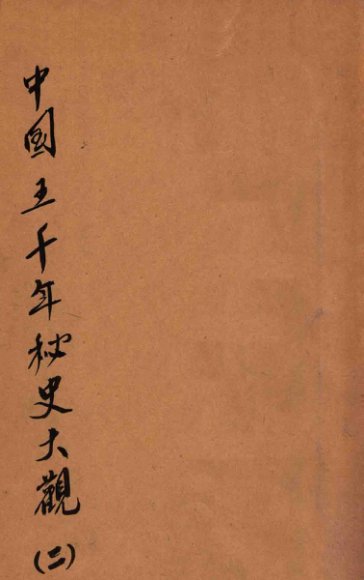 中国五千年秘史大觀(二)